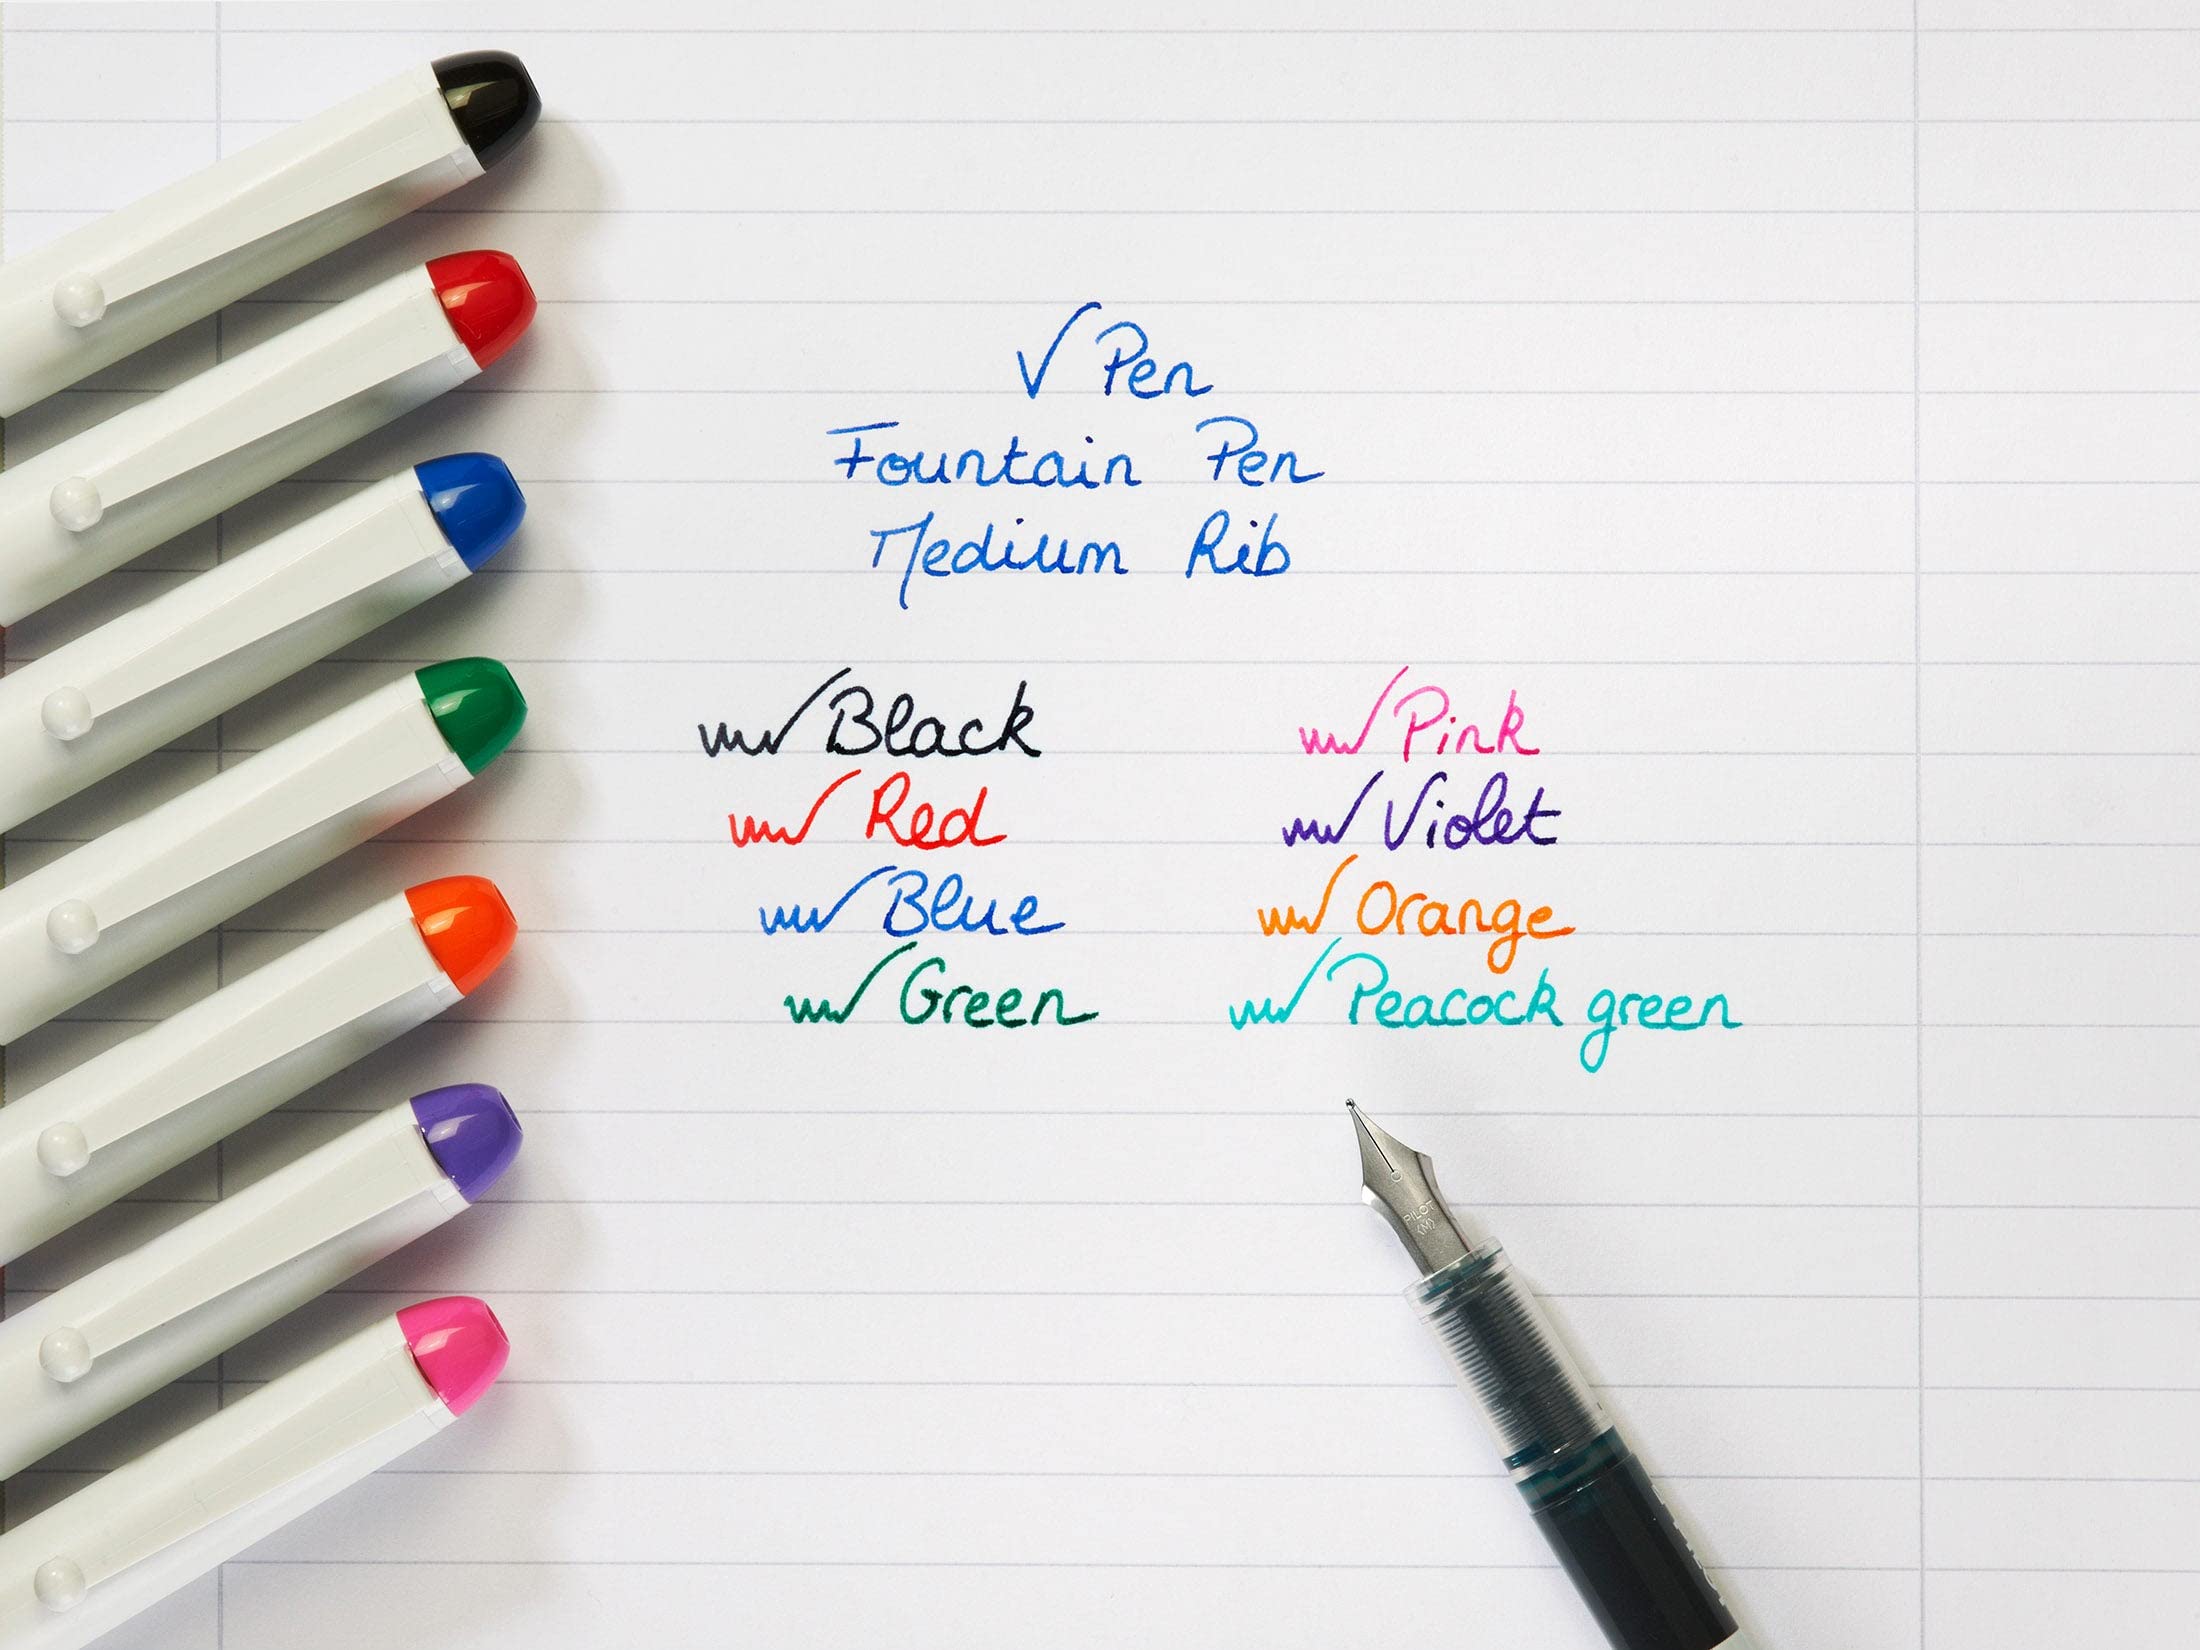 V Pen
Fountain Pen
Medium Rib
Black
Red
Blue
Green
Pink
Violet
Orange
Peacock green
PILOT
<M>